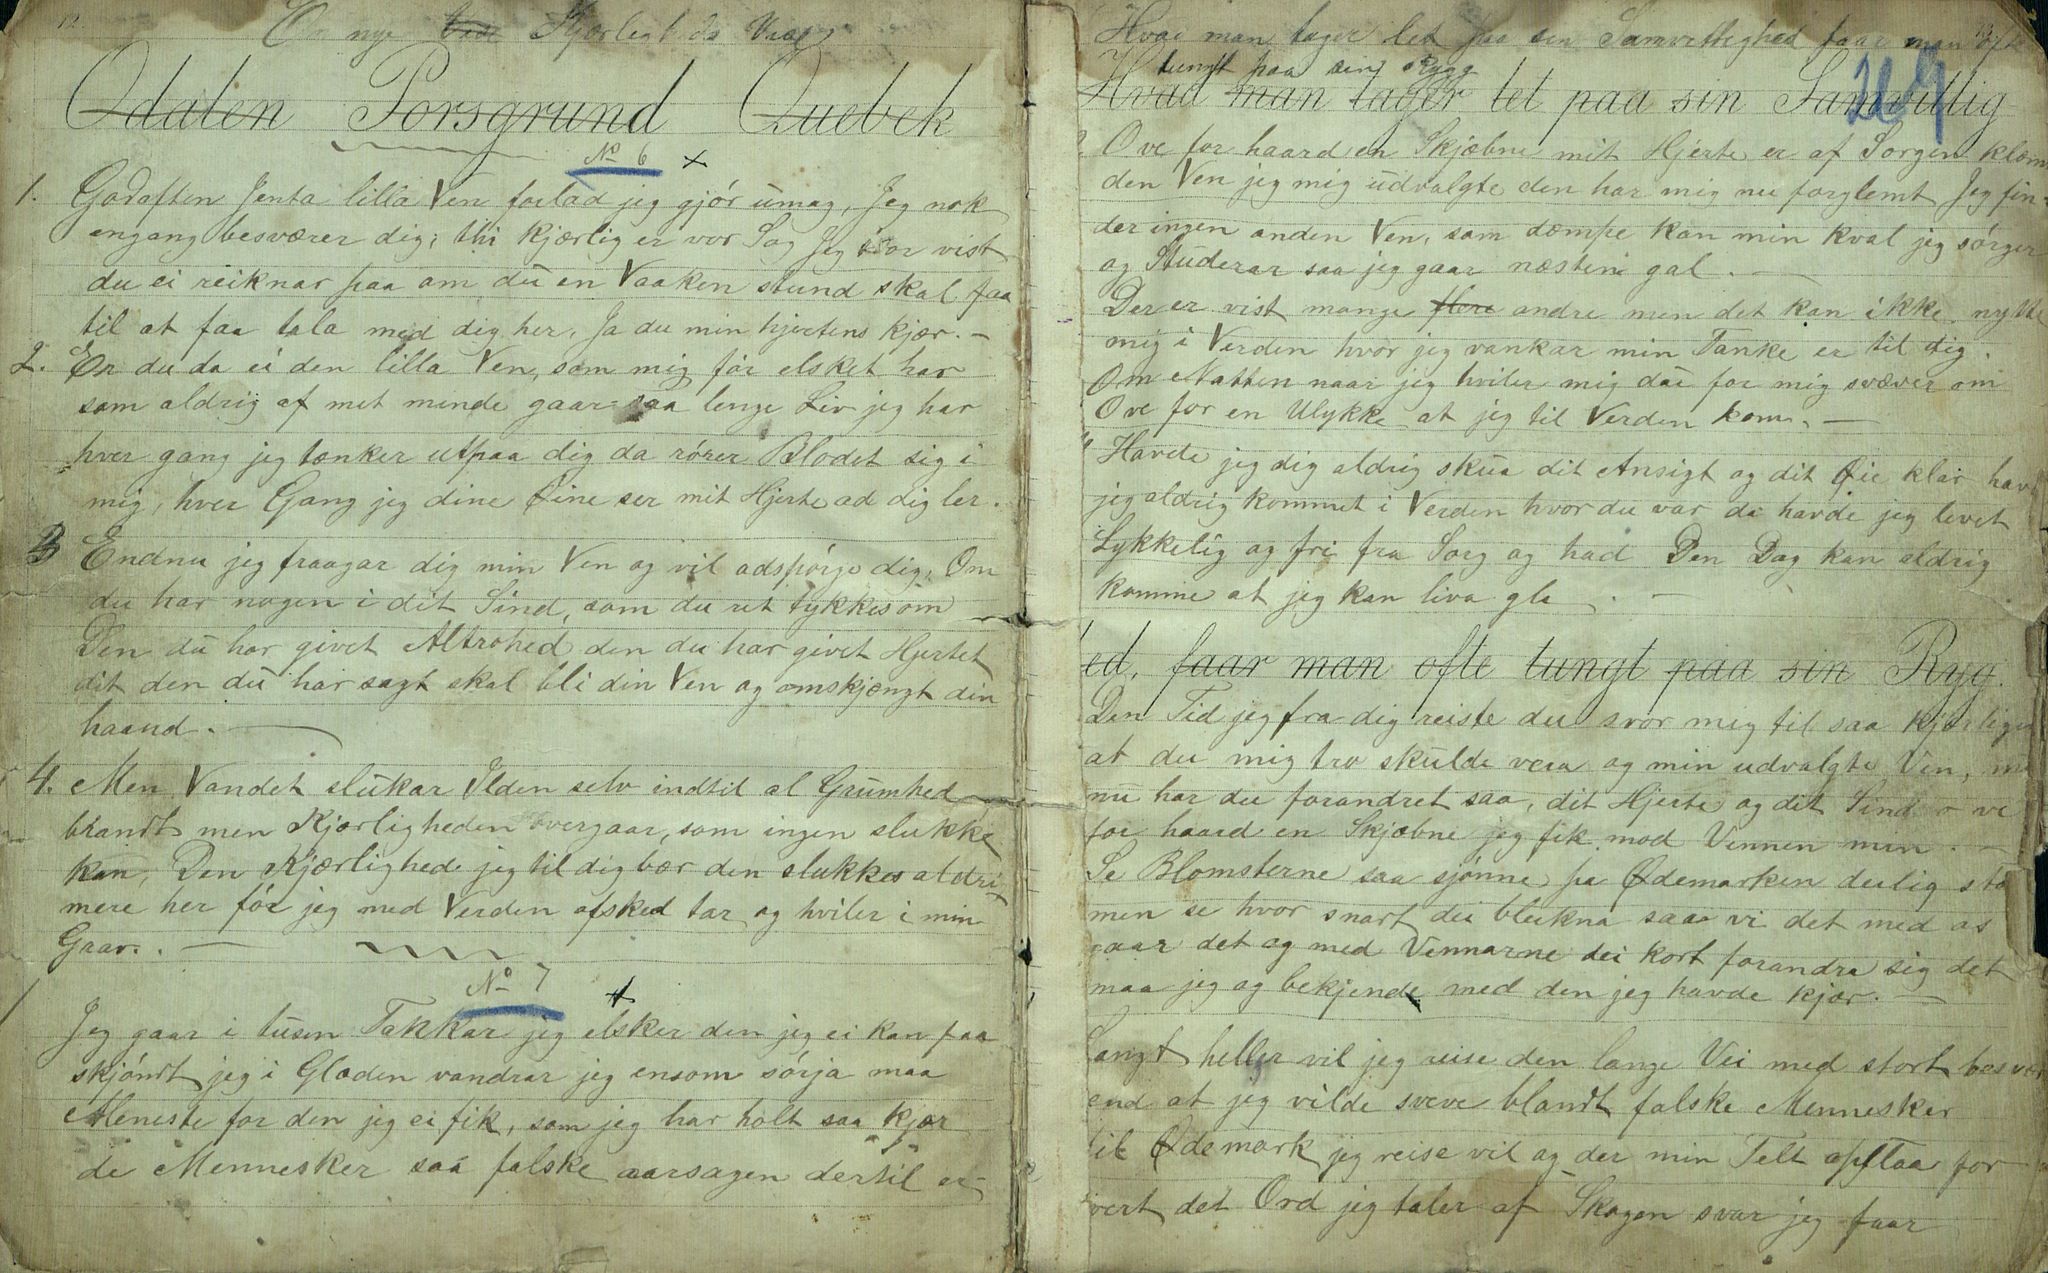 12.
En nye ~~Vise~~ Kjærlighds Viser
Odalen Porsgrund Quebek
No 6 x
1. Godaften Jenta lilla Ven forlad jeg gjör umag, Jeg nok
engang besværer dig; thi kjærlig er vor Sag Jeg tror vist
du ei reiknar paa om du en Vaaken stund skal faa
til at faa tala med dig her, Ja du min hjertens kjær. —
2. Er du da ei den lilla Ven, som mig för elsket har
som aldrig af met minde gaar saa lenge Liv jeg har
hver gang jeg tænker utpaa dig da rörer Blodet sig i
mig, hver Gang jeg dine Öine ser mit Hjerte ad dig ler.
3 Endnu jeg fraagar dig min Ven og vil adspörge dig, Om
du har nogen i dit Sind, som du ret tykkes om
Den du har givet Altrohed den du har givet Hjertet
dit den du har sagt skal bli din Ven og omskjengt din
haand. —
4. Men Vandet slukar Ilden selv indtil al Grumhed
brandt men Kjærligheden overgaar, som ingen slukke
kan, Den Kjærlighed jeg til dig bær den slukkes aldri
mere her för jeg med Verden afsked tar og hviler i min
Grav. —
No 7 x
1 Jeg gaar i tusen Takkar jeg elsker den jeg ei kan faa
skjöndt jeg i Gloden vandrar jeg ensom sörja maa
Meneste for den jeg ei fik, som jeg har holt saa kjær
de Mennesker saa falske aarsagen dertil er
Hvad man tager let paa sin Samvittighed faar man ofte
tungt paa sin Rygg
269
Hvad man tager let paa sin Samvittig
2. O ve for haard en Skjæbne mit Hjerte er af Sorgen klem
den Ven jeg mig udvalgte den har mig nu forglemt Jeg fin-
der ingen anden Ven, som dæmpe kan min kval jeg sörger
og Studerar saa jeg gaar næsten gal. —
Der er vist mange ~~flere~~ andre men det kan ikke nytte
mig i Verden hvor jeg vankar min Tanke er til dig.
Om Natten naar jeg hviler mig du for mig svæver om
O ve for en Ulykke at jeg til Verden kom. —
4 Havde jeg dig aldrig skua dit Ansigt og dit Öie klar hav
jeg aldrig kommet i Verden hvor du var da havde jeg levet
Lykkelig og fri fra Sorg og had Den Dag kan aldrig
komme at jeg kan liva gla. —
ed, faar man ofte tungt paa sin Ryg.
Den Tid jeg fra dig reiste du svor mig til saa kjærlige
at du mig tro skulde vera og min udvalgte Ven, m
nu har du forandret saa, dit Hjerte og dit Sind o ve
for haard en Skjæbne jeg fik mod Vennen min. —
Se Blomsterne saa sjönne pa Ödemarken deilig sto
men se hvor snart dei bleikna saa vi det med os
gaar det og med Vennarne dei kort forandra sig det
maa jeg og bekjende med den jeg havde kjær. —
Langt heller vil jeg reise den lange Vei med stort besvær
end at jeg vilde sveve blandt falske Mennesker
til Ödemark jeg reise vil og der min Telt opslaa for
hvert det Ord jeg taler af Skogen svar jeg faar